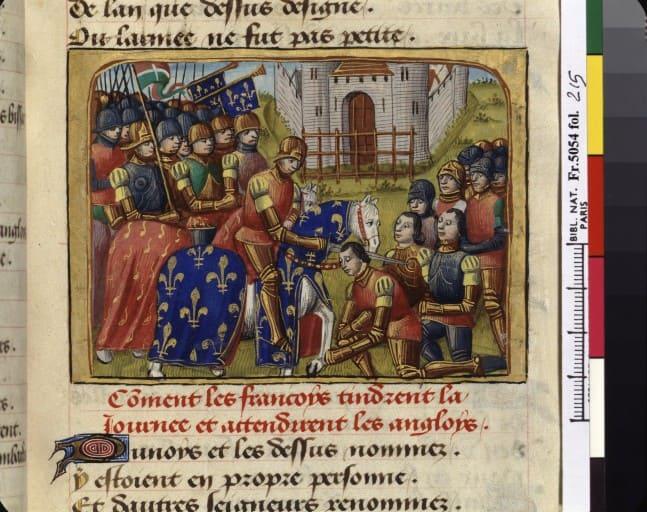 De lan que dessus designe.
Ou larmee ne fut pas petite.
Cõment les francoys tindrent la
Journee et attendirent les angloys.
Dunoys et les dessus nommez.
y estoient en propre personne.
Et dautres seigneurs renommez.
BIBL. NAT. Fr.5054 fol. 215
PARIS